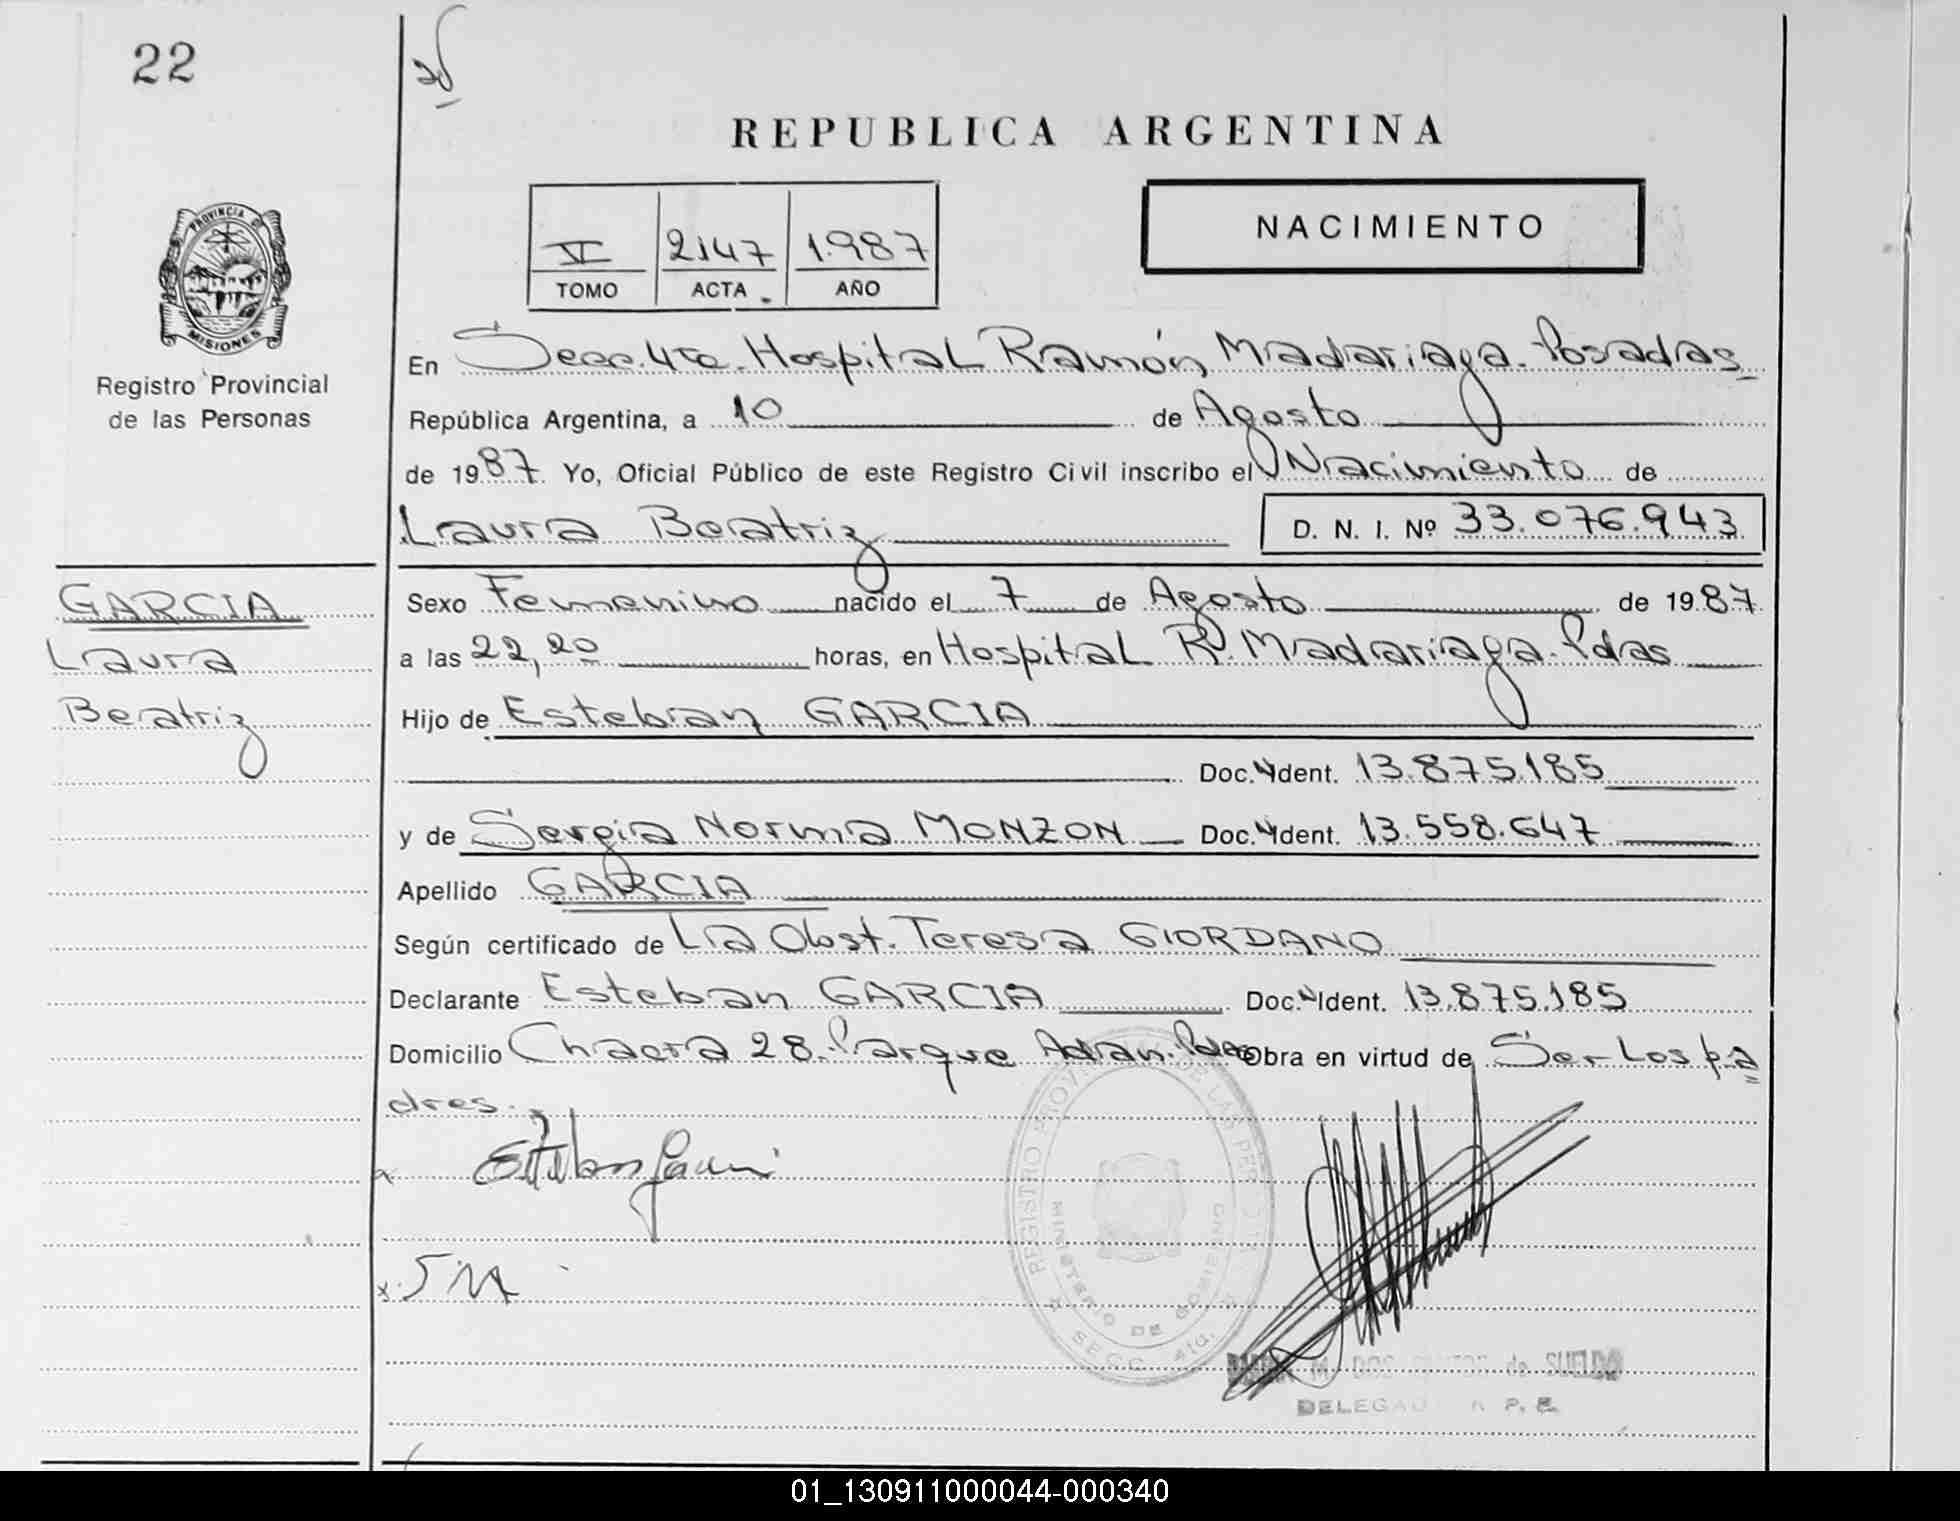 22
REPUBLICA ARGENTINA
NACIMIENTO
VI 2147 1.987
TOMO ACTA AÑO
PROVINCIA DE
MISIONES
Registro Provincial
de las Personas
En Secc. 4ta. Hospital Ramón Madariaga. Posadas
República Argentina, a 10 de Agosto
de 1987 Yo, Oficial Público de este Registro Civil inscribo el Nacimiento de
Laura Beatriz D. N. I. Nº 33.076.943
GARCIA
Laura
Beatriz
Sexo Femenino nacido el 7 de Agosto de 1987
a las 22,20 horas, en Hospital R. Madariaga. Pdas
Hijo de Esteban GARCIA
Doc. Ident. 13.875.185
y de Sergia Norma MONZON Doc. Ident. 13.558.647
Apellido GARCIA
Según certificado de La Obst. Teresa GIORDANO
Declarante Esteban GARCIA Doc. Ident. 13.875.185
Domicilio Chacra 28. Parque Adan. Pdas Obra en virtud de Ser Los pa
dres.
Esteban Garcia
x. S M
REGISTRO PROVINCIAL DE LAS PERSONAS
MINISTERIO DE GOBIERNO
SECC. 4ta.
M. DOS SANTOS de SUELDO
DELEGADA R. P. P.
01_130911000044-000340